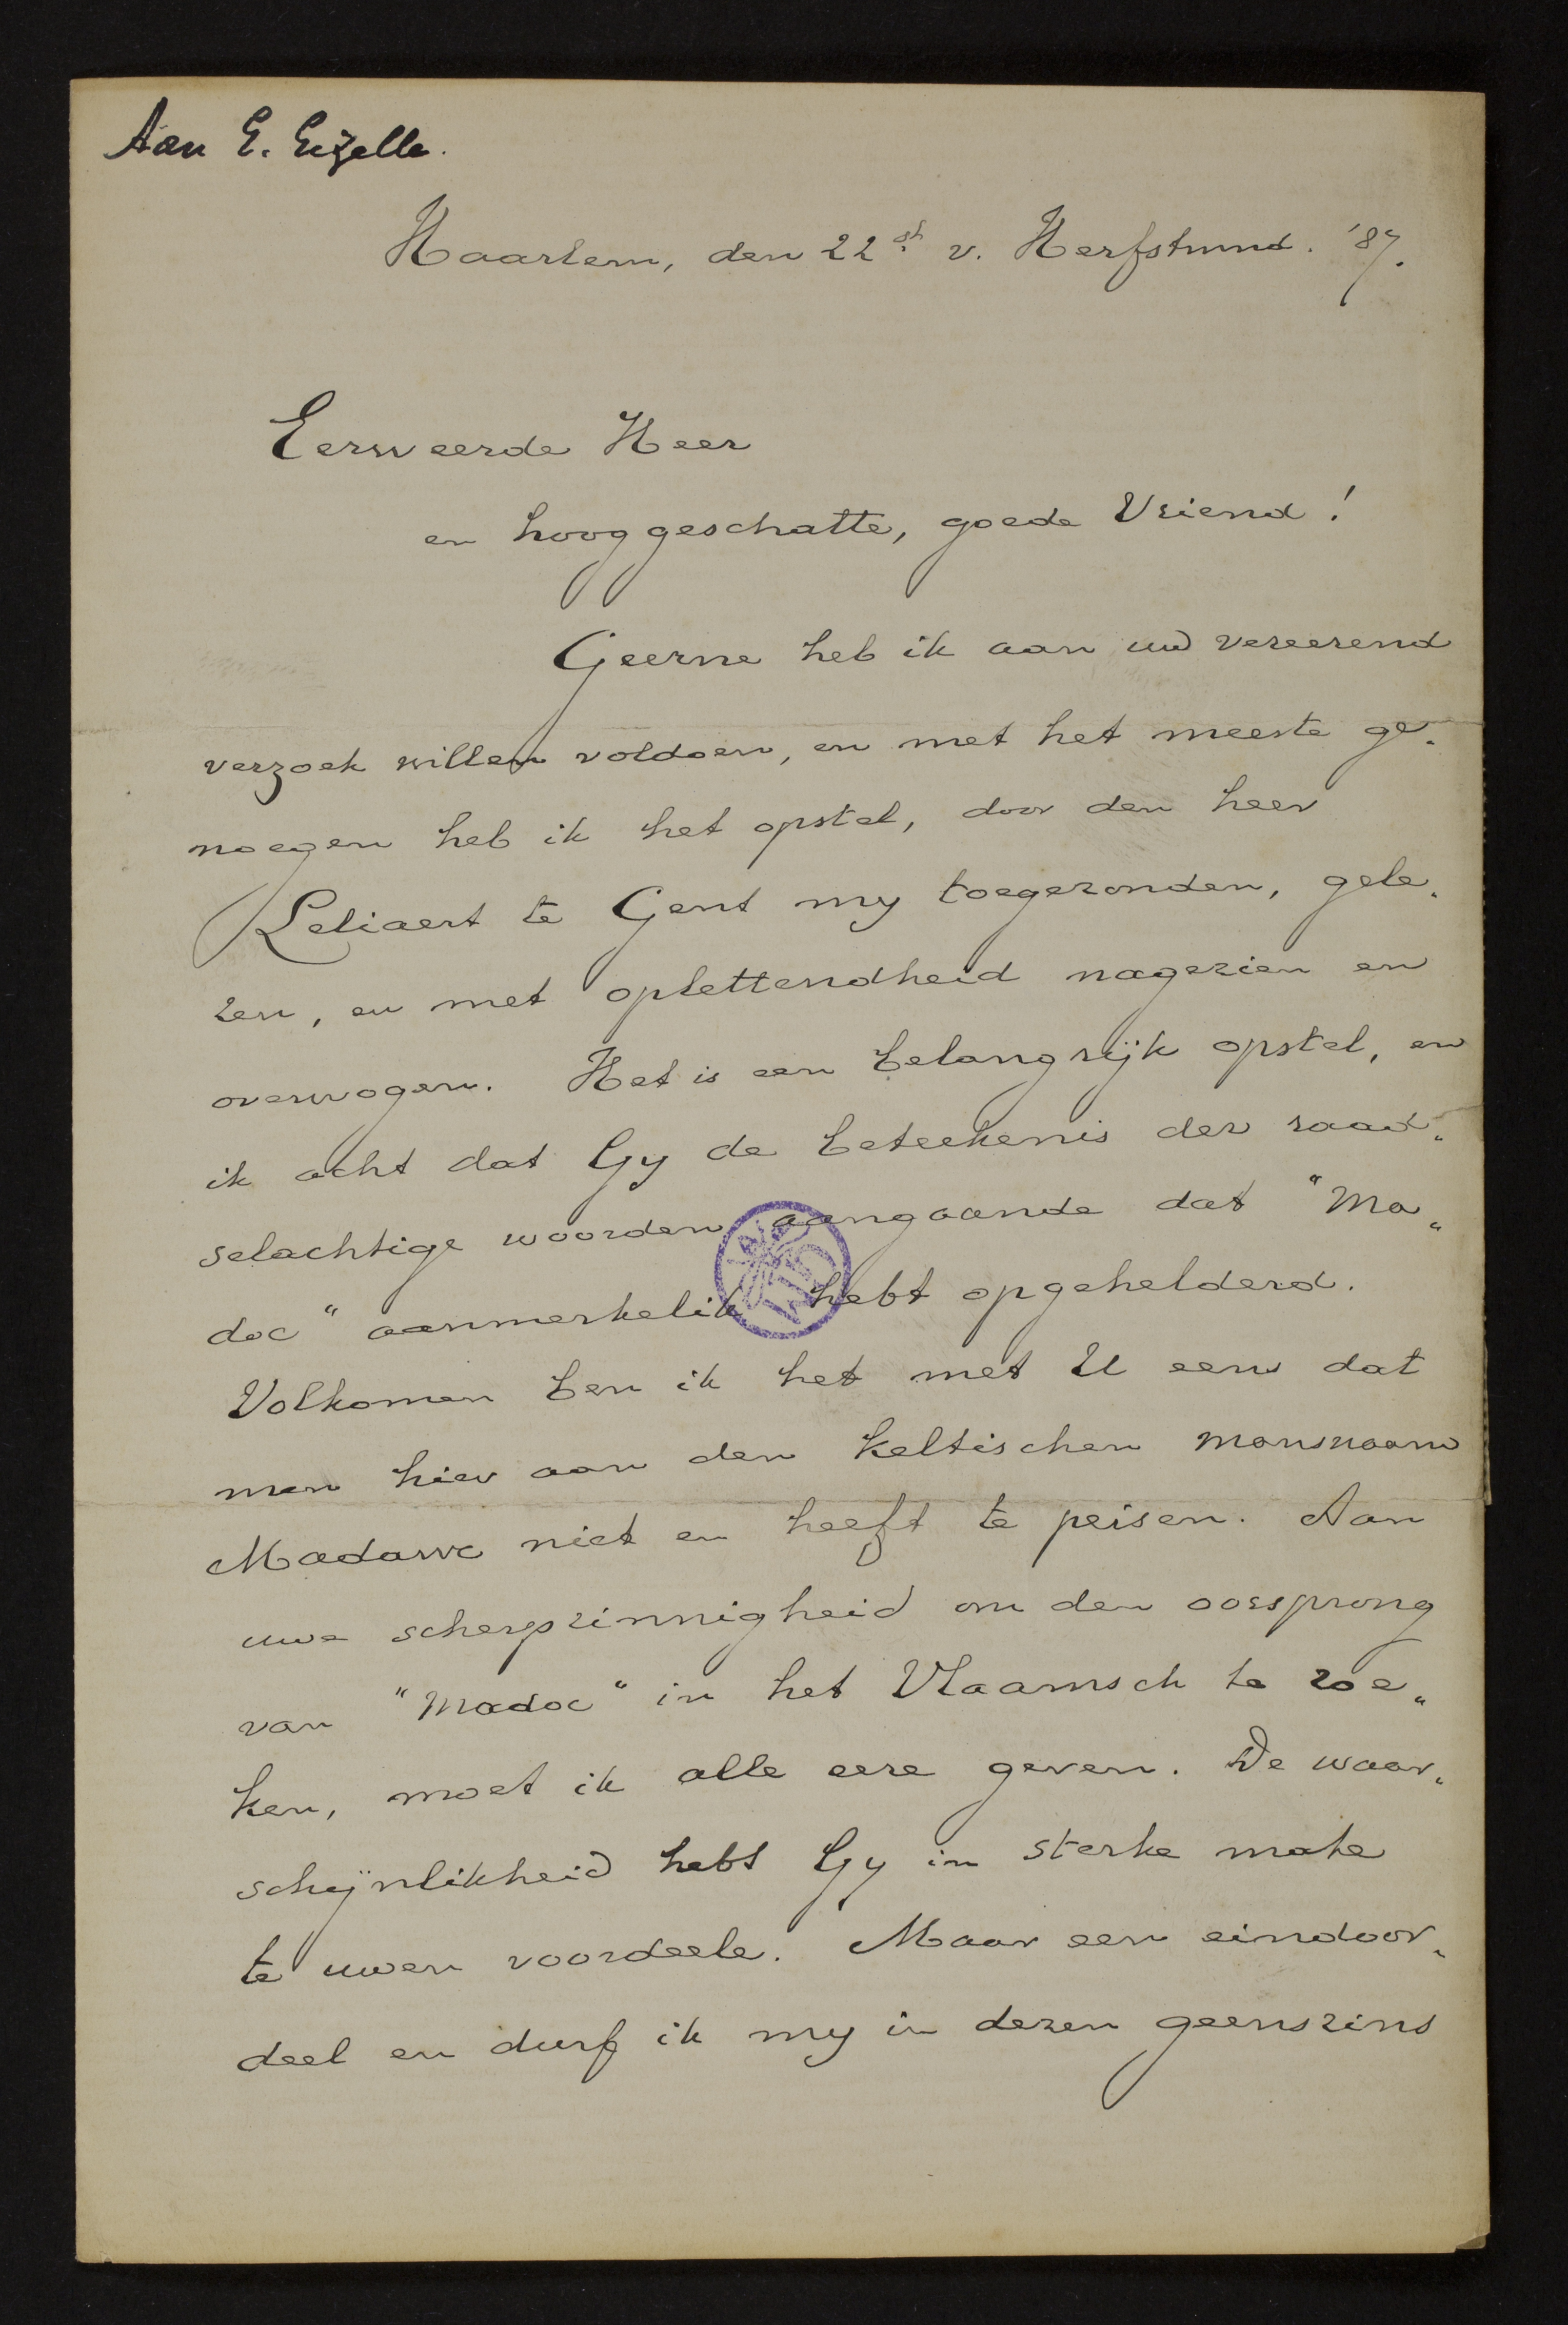 Aan G. Gezelle.
Haarlem, den 22st v. Herfstmnd. '87.
Eerweerde Heer
en hooggeschatte, goede Vriend!
Geerne heb ik aan uw vereerend
verzoek willen voldoen, en met het meeste ge„
noegen heb ik het opstel, door den heer
Leliaert te Gent my toegezonden, gele„
zen, en met oplettendheid nagezien en
overwogen. Het is een belangrijk opstel, en
ik acht dat Gy de beteekenis der raad„
selachtige woorden aangaande dat "Ma„
doc" aanmerkelik hebt opgehelderd.
Volkomen ben ik het met U eens dat
men hier aan den keltischen mansnaam
Madawc niet en heeft te peisen. Aan
uwe scherpzinnigheid om den oorsprong
van "Madoc" in het Vlaamsch te zoe„
ken, moet ik alle eere geven. De waar„
schijnlikheid hebt Gy in sterke mate
te uwen voordeele. Maar een eindoor„
deel en durf ik my in dezen geenszins